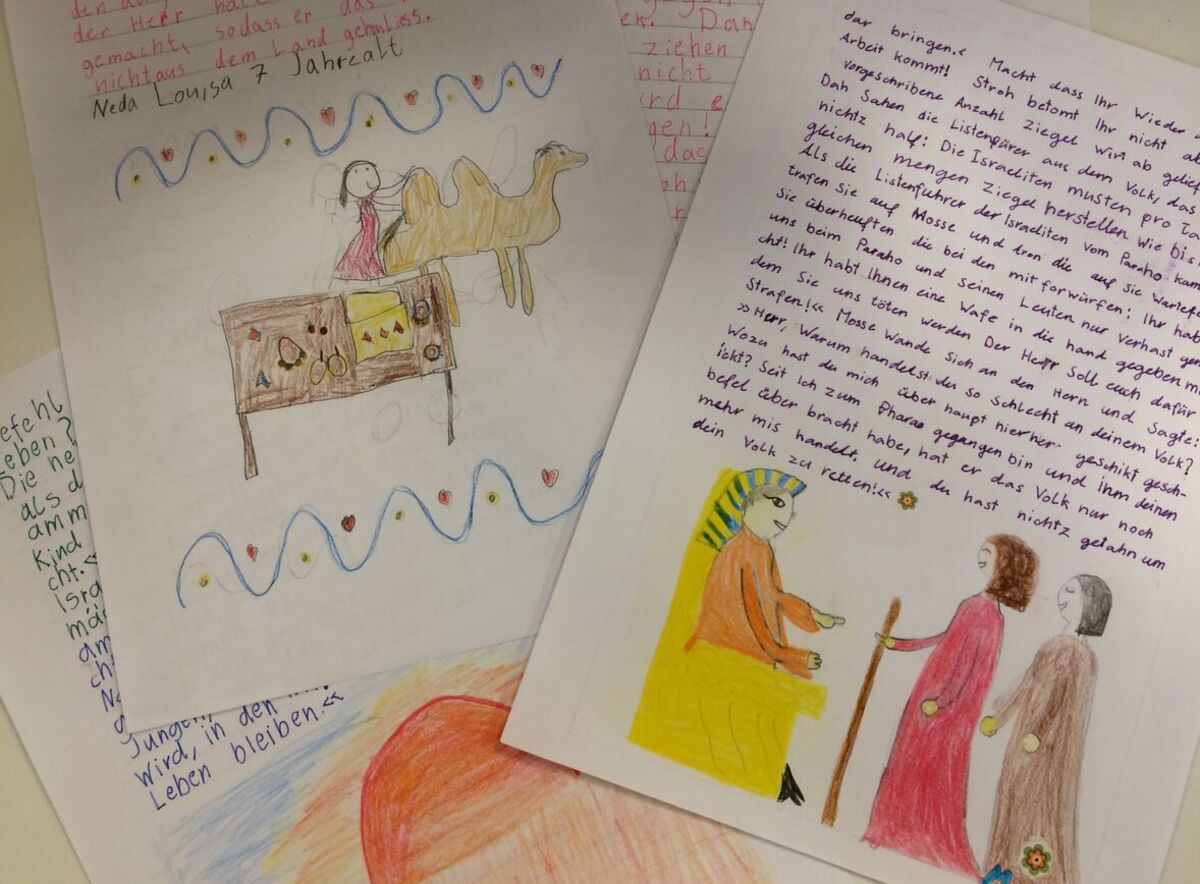 der Herr hat
gemacht, sodass er das
nicht aus dem Land gehnliess.
Neda Louisa 7 Jahrealt
Dan
ziehen
nicht
ird e
gen!
das
dar bringen.« Macht dass Ihr Wieder
Arbeit kommt! Stroh betomt Ihr nicht
vorgeschribene Anzahl Ziegel Wirt ab gelief
Dah Sahen die Listenfürer aus dem Volk, das
nichtz half: Die Israeliten musten pro Ta
gleichen mengen Ziegel herstellen Wie bis
Als die Listenführer der Israeliten vom Paraho kam
trafen Sie auf Mosse und die auf Sie
Sie überheuften die bei den mit forwürfen: Ihr hab
uns beim Paraho und seinen Leuten nur verhast gem
cht! Ihr habt Ihnen eine Wafe in die hand gegeben mi
dem Sie uns töten werden Der Herr Soll euch dafür
Strafen!« Mosse Wande Sich an den Hern und Sagte:
»Herr, Warum handelst du so Schlecht an deinem Volk?
Wozu hast du mich über haupt hierher geschikt gesch-
ickt? Seit Ich zum Pharao gegangen bin und ihm deinen
befel über bracht habe, hat er das Volk nur noch
mehr mis handelt, und du hast nichtz getahn um
dein Volk zu retten!«
efehl
eben?
Die he
als d
amm
Kind
cht.«
Isra
mä
am
ch
Jungen,
Wird, in den
Leben bleiben.«